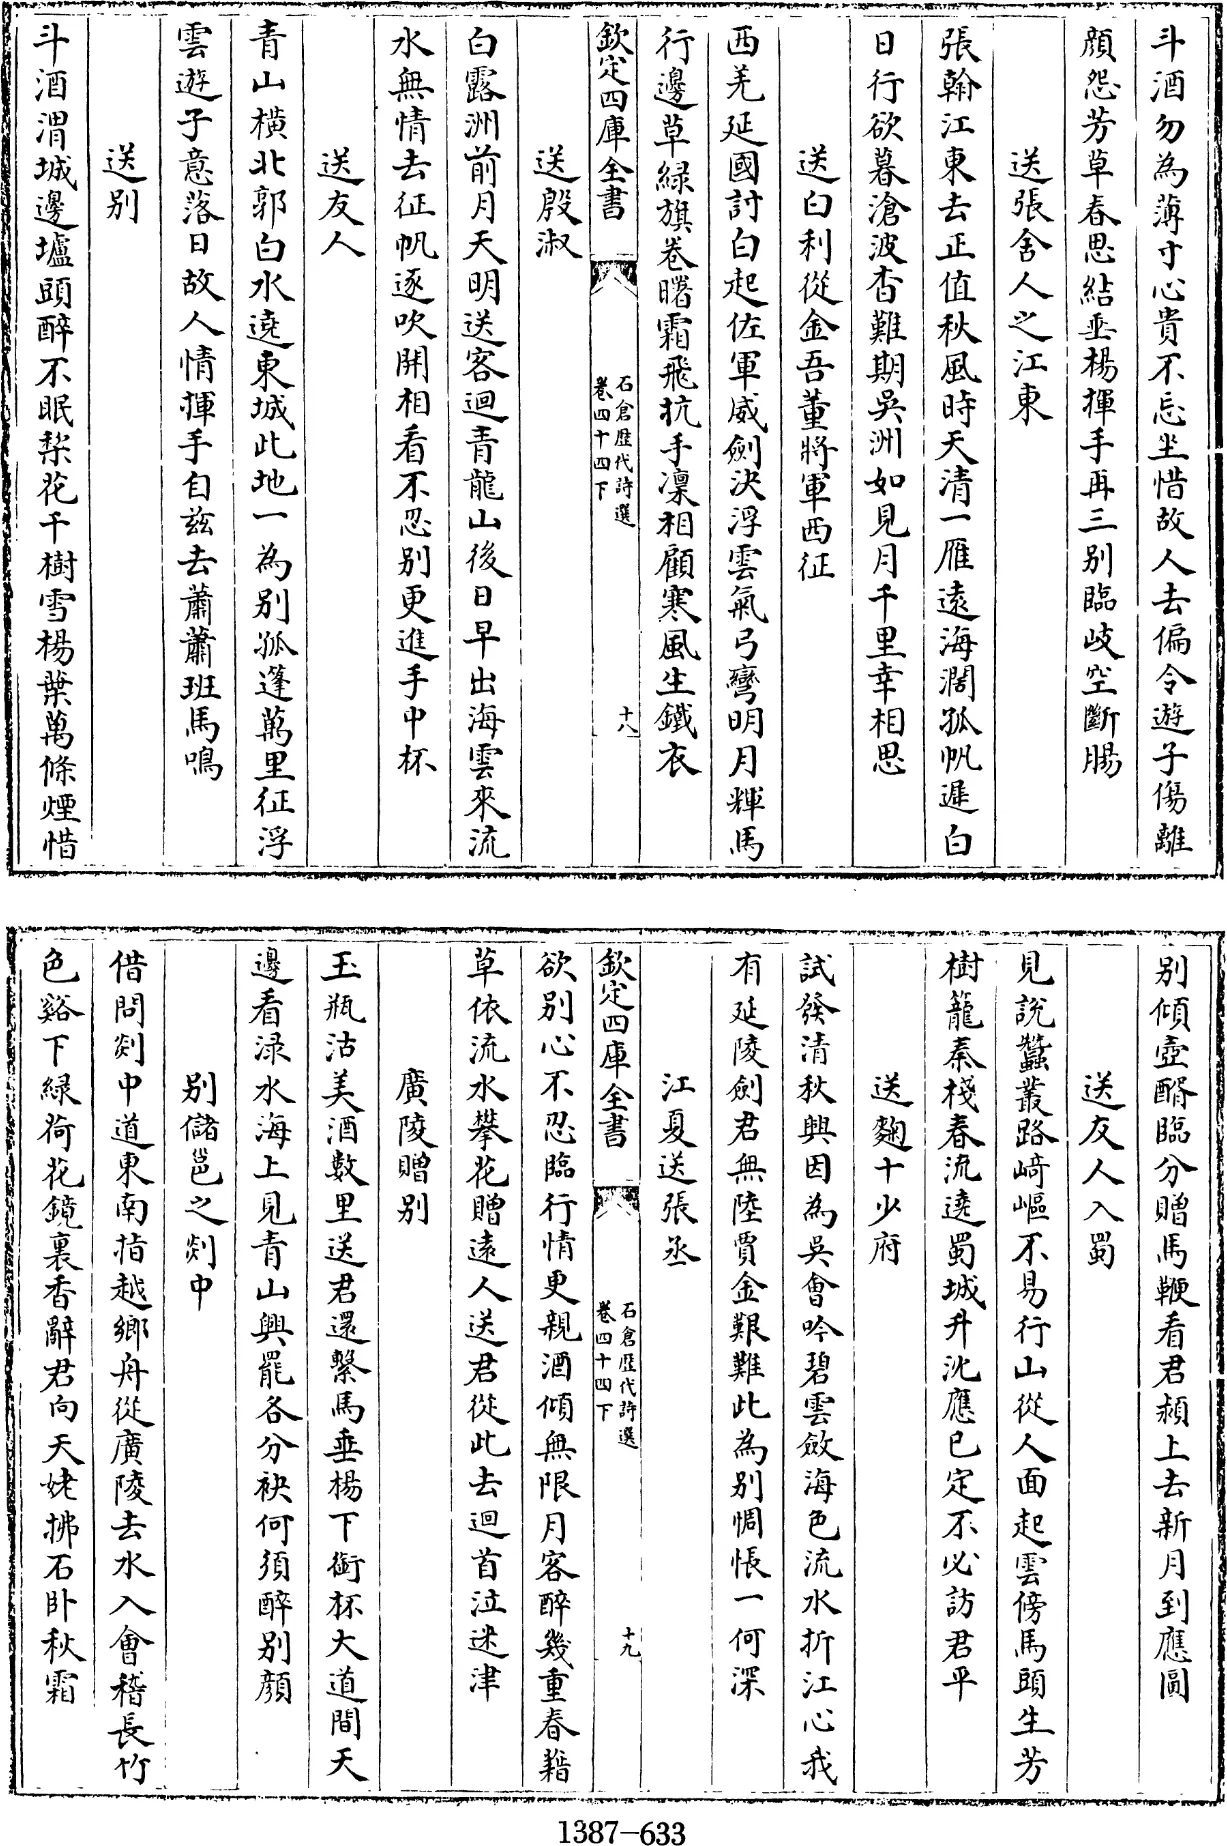 斗酒勿為薄寸心貴不忘坐惜故人去偏令遊子傷離
顔怨芳草春思結垂楊揮手再三别臨岐空斷腸
送張舍人之江東
張翰江東去正值秋風時天清一雁遠海濶孤帆遲白
日行欲暮滄波杳難期吳洲如見月千里幸相思
送白利從金吾董將軍西征
西羌延國討白起佐軍威劍決浮雲氣弓彎明月輝馬
行邊草綠旗卷曙霜飛抗手凜相顧寒風生鐵衣
欽定四庫全書
石倉歷代詩選
卷四十四下
十八
送殷淑
白露洲前月天明送客迴青龍山後日早出海雲來流
水無情去征帆逐吹開相看不忍别更進手中杯
送友人
青山横北郭白水遶東城此地一為别孤蓬萬里征浮
雲遊子意落日故人情揮手自兹去蕭蕭班馬鳴
送别
斗酒渭城邊壚頭醉不眠梨花千樹雪楊葉萬條煙惜
别傾壺醑臨分贈馬鞭看君潁上去新月到應圓
送友人入蜀
見說蠶叢路﨑嶇不易行山從人面起雲傍馬頭生芳
樹籠秦棧春流遶蜀城升沈應已定不必訪君平
送麴十少府
試發清秋興因為吳會吟碧雲斂海色流水折江心我
有延陵劍君無陸賈金艱難此為别惆悵一何深
江夏送張丞
欽定四庫全書
石倉歷代詩選
卷四十四下
十九
欲别心不忍臨行情更親酒傾無限月客醉幾重春藉
草依流水攀花贈遠人送君從此去迴首泣迷津
廣陵贈别
玉瓶沽美酒數里送君還繫馬垂楊下銜杯大道間天
邊看淥水海上見青山興罷各分袂何須醉别顔
别儲邕之剡中
借問剡中道東南指越鄉舟從廣陵去水入會稽長竹
色谿下綠荷花鏡裏香辭君向天姥拂石卧秋霜
1387-633